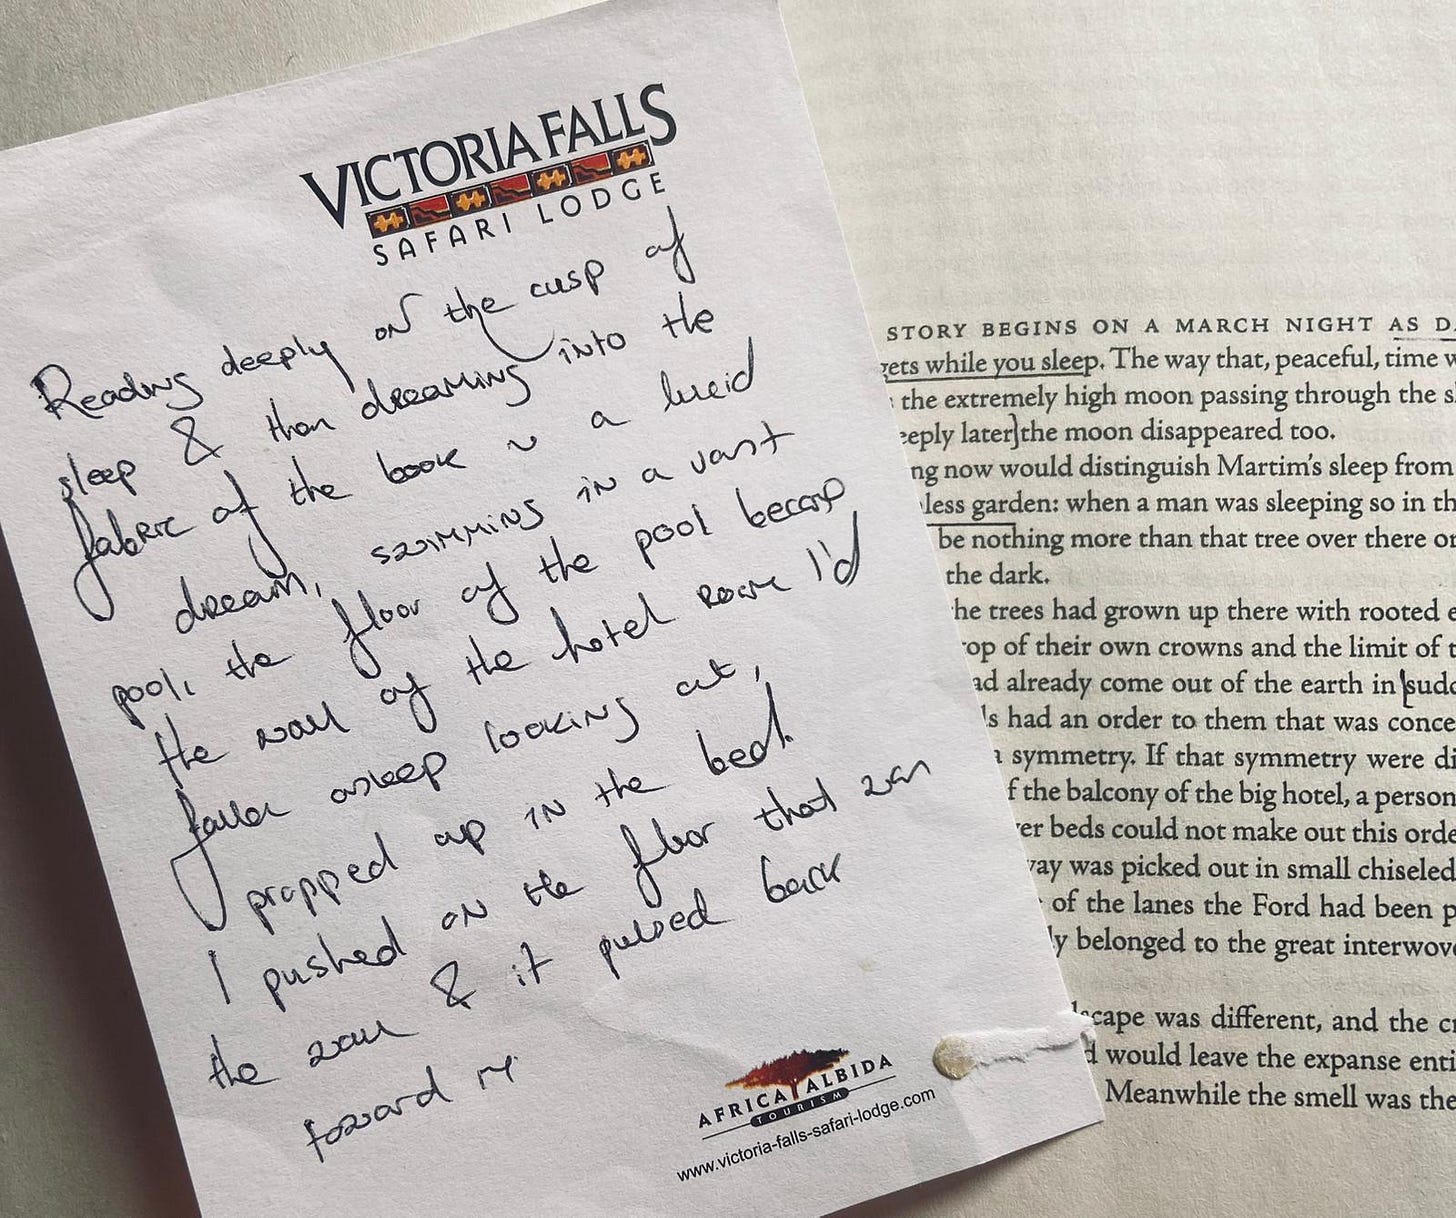 VICTORIA FALLS
SAFARI LODGE
Reading deeply on the cusp of
sleep & then dreaming into the
fabric of the book ~ a lucid
dream, swimming in a vast
pool, the floor of the pool became
the wall of the hotel room I'd
fallen asleep looking at,
propped up in the bed.
I pushed on the floor that was
the wall & it pulsed back
toward me.
AFRICA ALBIDA
TOURISM
www.victoria-falls-safari-lodge.com
STORY BEGINS ON A MARCH NIGHT AS DA
gets while you sleep. The way that, peaceful, time w
the extremely high moon passing through the s
eeply later]the moon disappeared too.
ng now would distinguish Martim's sleep from
less garden: when a man was sleeping so in th
be nothing more than that tree over there or
the dark.
he trees had grown up there with rooted e
op of their own crowns and the limit of t
ad already come out of the earth in sudd
ls had an order to them that was conce
a symmetry. If that symmetry were di
f the balcony of the big hotel, a person
er beds could not make out this orde
way was picked out in small chiseled
of the lanes the Ford had been p
ly belonged to the great interwov
scape was different, and the cr
d would leave the expanse enti
Meanwhile the smell was the